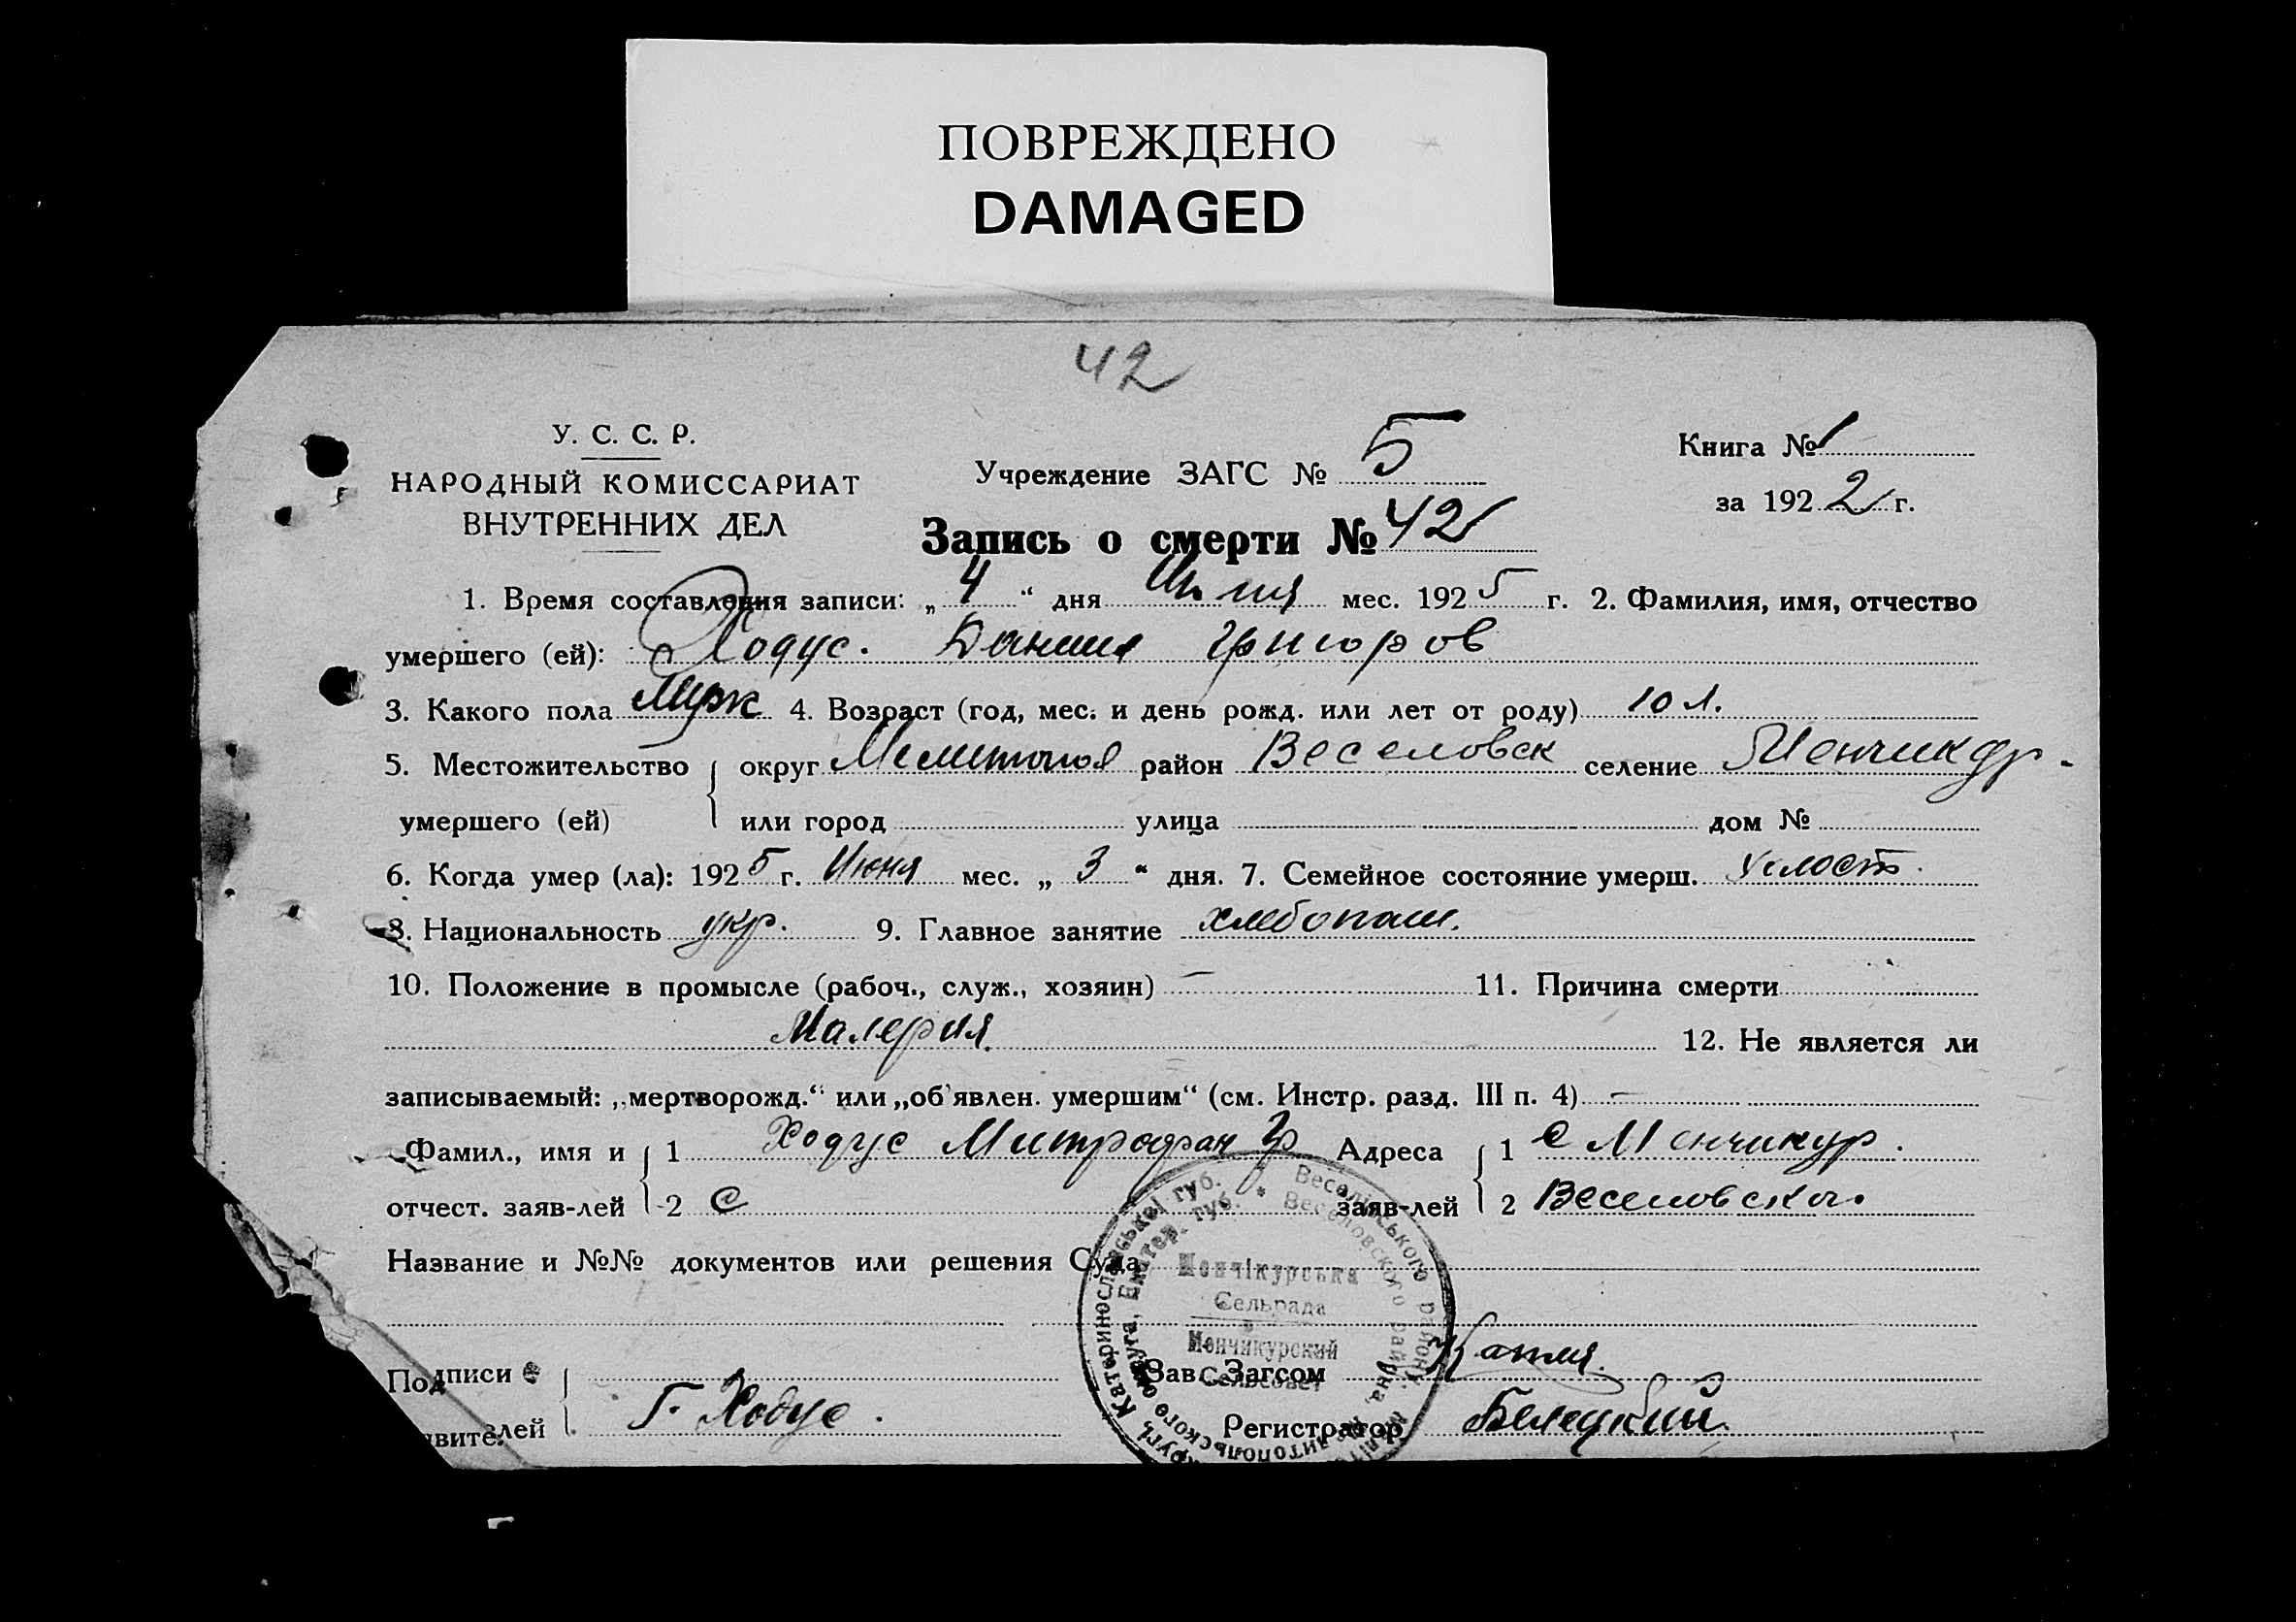 ПОВРЕЖДЕНО
DAMAGED
42
У. С. С. Р.
НАРОДНЫЙ КОМИССАРИАТ
ВНУТРЕННИХ ДЕЛ
Учреждение ЗАГС № 5
Книга № 1
за 1922 г.
Запись о смерти № 42
1. Время составления записи: „ 4 “ дня мес. 1925 г. 2. Фамилия, имя, отчество
умершего (ей): Ходус. Данил Григоров
3. Какого пола Муж 4. Возраст (год, мес. и день рожд. или лет от роду) 10 л.
5. Местожительство округ Мелитопол район Веселовск селение Менчикур.
умершего (ей) или город улица дом №
6. Когда умер (ла): 1925 г. Июня мес. „ 3 “ дня. 7. Семейное состояние умерш. холост.
8. Национальность укр. 9. Главное занятие хлебопаш.
10. Положение в промысле (рабоч., служ., хозяин) — 11. Причина смерти
Малерия. 12. Не является ли
записываемый: „мертворожд.“ или „об'явлен. умершим“ (см. Инстр. разд. III п. 4) —
Фамил., имя и 1 Ходус Митрофан Гр Адреса 1 с Менчикур.
отчест. заяв-лей 2 с заяв-лей 2 Веселовско.
Название и №№ документов или решения Суда
Менчікурська
Сельрада
Менчикурский
Сельсовет
Веселівського району
Веселовского района,
Катеринославської губ.
Екатер. губ.
Подписи Зав. Загсом
явителей Г. Ходус. Регистратор Белецкий